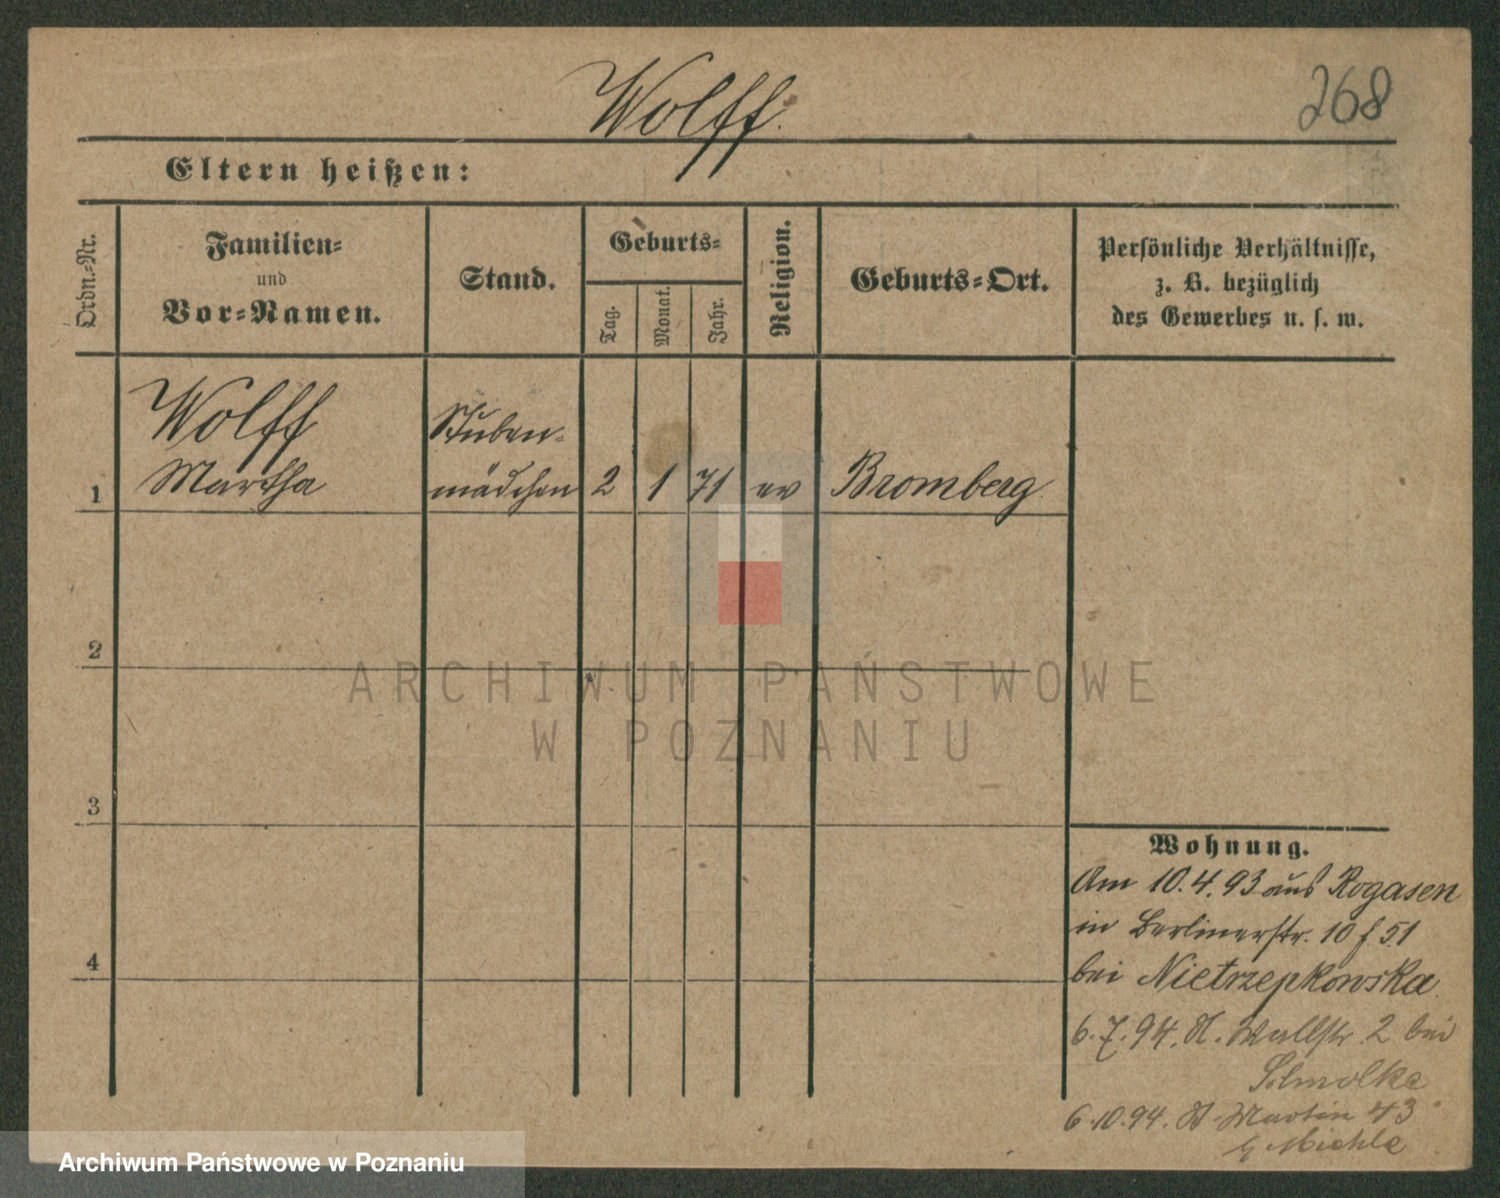 Wolff.
268
Eltern heißen:
Ordn.=Nr.
Familien=
und
Vor=Namen.
Stand.
Geburts=
Tag.
Monat.
Jahr.
Religion.
Geburts=Ort.
Persönliche Verhältnisse,
z. B. bezüglich
des Gewerbes u. s. w.
1
Wolff
Martha
Stuben-
mädchen
2
1
71
ev
Bromberg
2
3
4
Wohnung.
Am 10.4.93 aus Rogasen
in Berlinerstr. 10 f. 51
bei Nietrzepkowska
6.7.94. Wallstr 2 bei
6.10.94. St Martin 43
ARCHIWUM PAŃSTWOWE
W POZNANIU
Archiwum Państwowe w Poznaniu